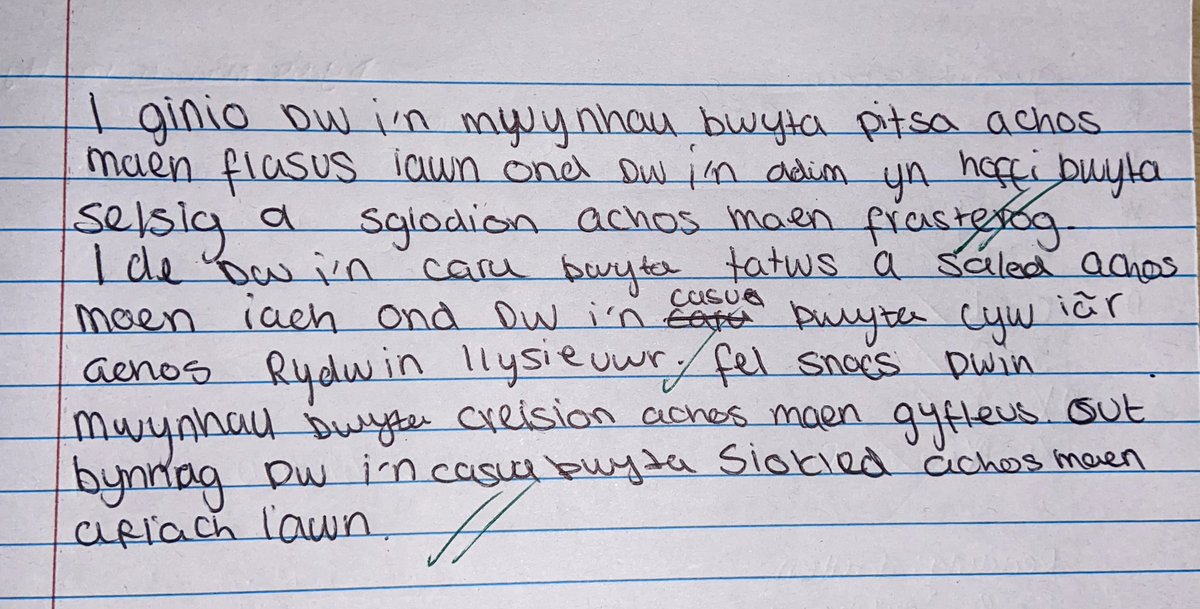 I ginio Dw i'n mwynhau bwyta pitsa achos
maen flasus iawn ond Dw i'n ddim yn hoffi bwyta
selsig a sglodion achos maen frasterog.
I de Dw i'n caru bwyta tatws a Saled achos
maen iach ond Dw i'n casua caru bwyta cyw iâr
achos Rydwin llysieuwr. fel snacs Dwin
mwynhau bwyta creision achos maen gyfleus. Sut
bynnag Dw i'n casua bwyta Siokled achos maen
afiach iawn.